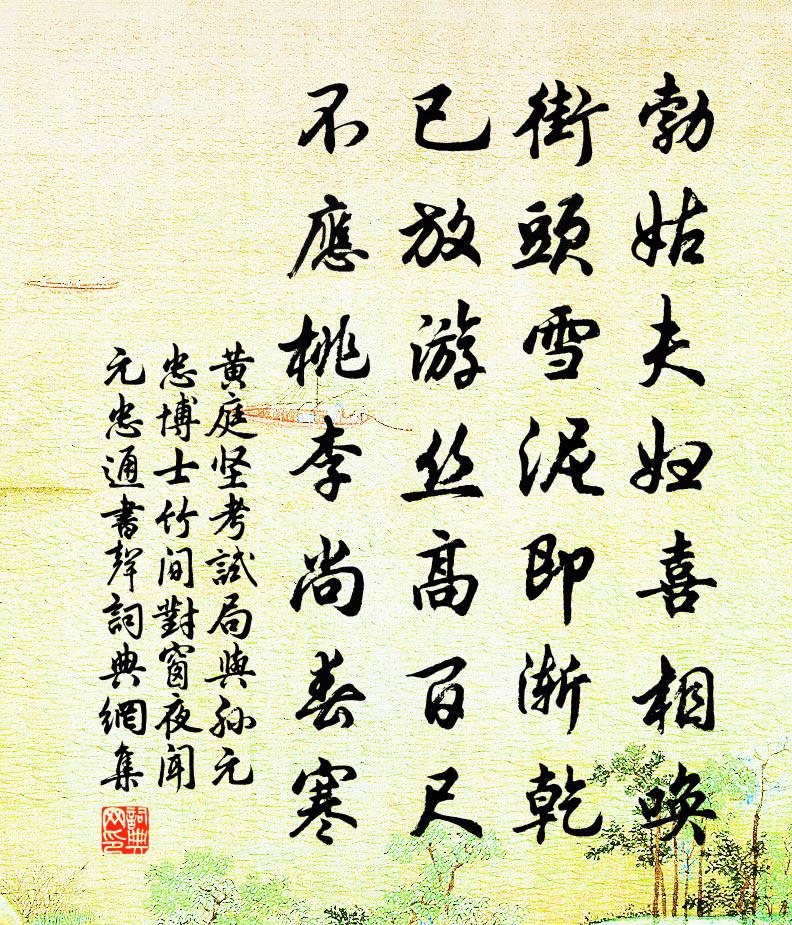 勃姑夫妇喜相唤
街頭雪泥即渐乾
已放游丝高百尺
不應桃李尚春寒
黄庭坚考試局與孙元
忠博士竹间對窗夜闻
元忠通書聲詞典網集
詞典網印